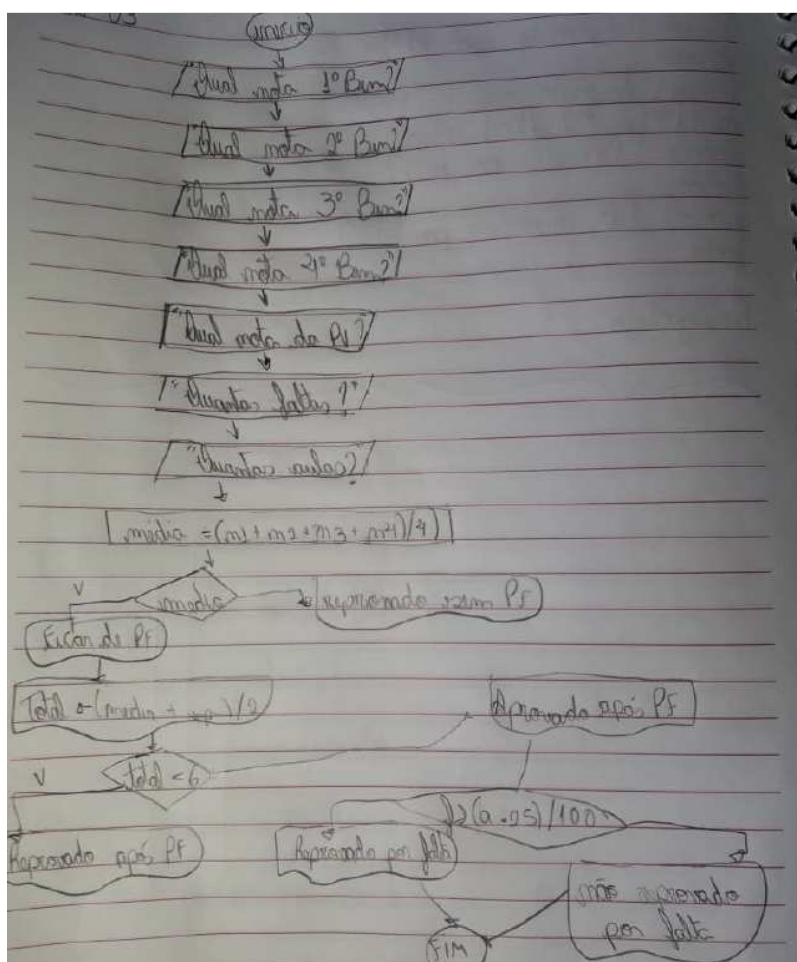 03
início
"Qual nota 1º Bim?"
"Qual nota 2º Bim?"
"Qual nota 3º Bim?"
"Qual nota 4º Bim?"
"Qual nota da Pf?"
"Quantas faltas?"
"Quantas aulas?"
média = (n1 + n2 + n3 + n4)/4)
V
media
reprovado sem Pf
Ficar de Pf
Total (media + )/2
Aprovado após Pf
V
total < 6
f>(a.25)/100
Reprovado após Pf
Reprovado por falta
não reprovado
por falta
FIM